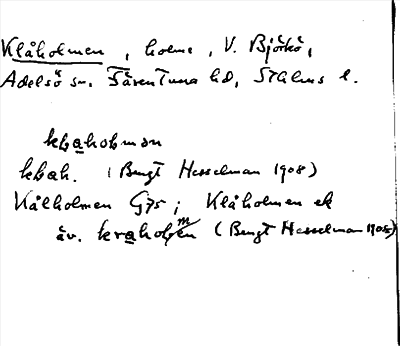 Klåholmen, holme, V. Björkö,
Adelsö sn. Färentuna hd, Sthlms l.
kłaholman
kłah. (Bengt Hesselman 1908)
Kålholmen G75; Klåholmen ek
äv. kraholmen (Bengt Hesselman 1905)